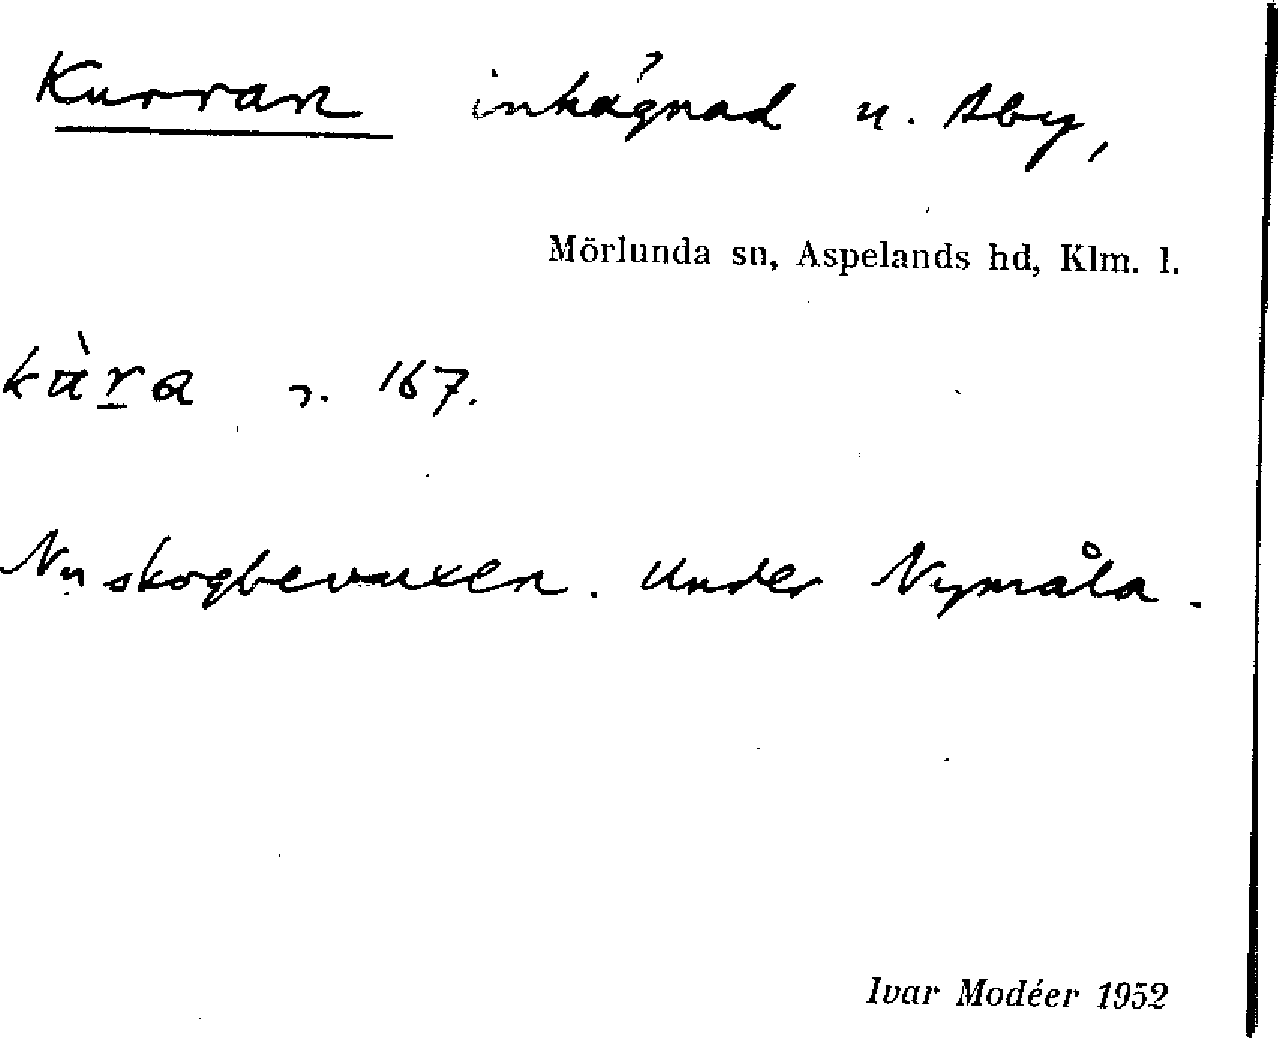 Kurran inhägnad u. Åby,
Mörlunda sn, Aspelands hd, Klm. l.
kùr̲a n. 167.
Nu skogbevuxen. Under Nymåla.
Ivar Modéer 1952